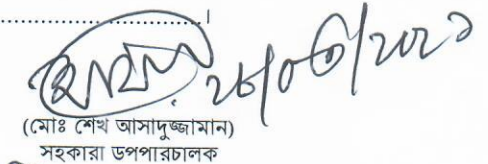 ...............................।
২৮/০৩/২০২১
(মোঃ শেখ আসাদুজ্জামান)
সহকারী উপপরিচালক